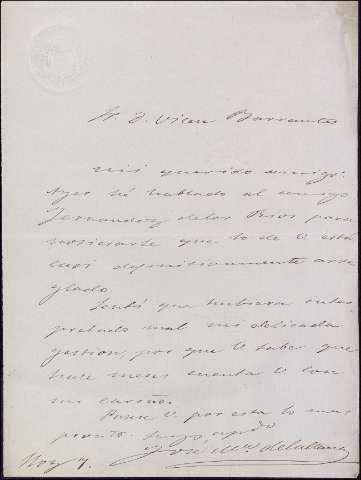 Sr. D. Vicen Barrantes
Mi querido amigo:
Ayer hé hablado al amigo
Fernandez de los Rios para
noticiarte que lo de V está
casi difinitivamente arre
glado.
Sentí que hubiera inter
pretado mal mi delicada
gestion, por que V sabe que
hace meses cuenta V con
mi cariño.
Pase V. por esta lo mas
pronto. Suyo apdo
José Mª de
Hoy 7.